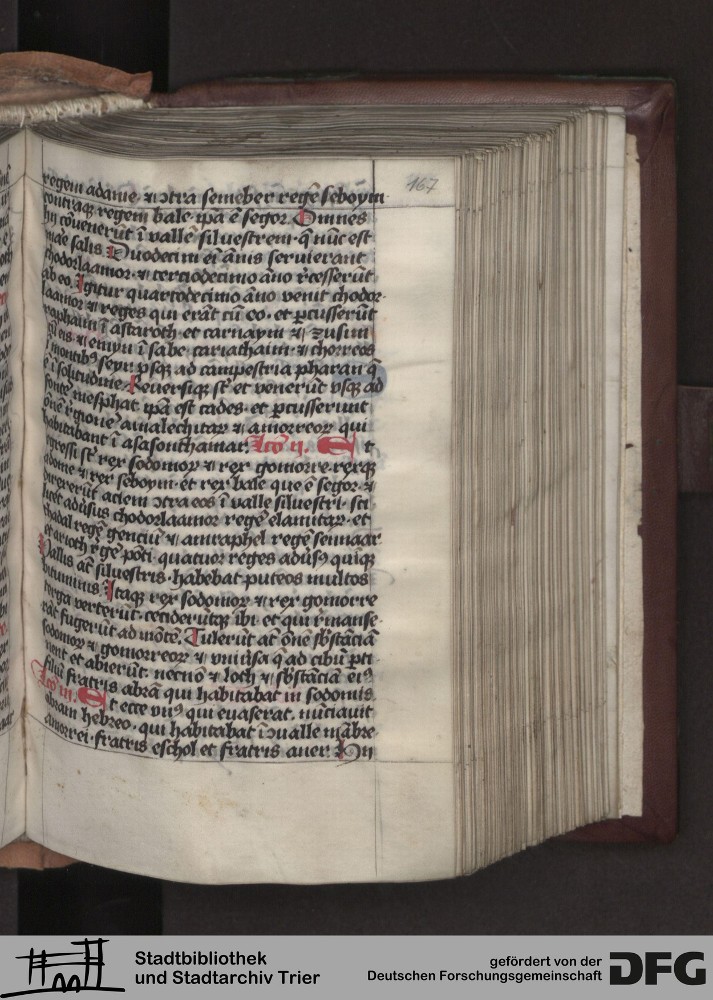 167
regem adame ⁊ ɔtra semeber regē seboym
contraq regem bale ip̄a ē segor. Omnes
hii cōuenerūt ī vallē siluestrem q̄ nūc est
mare salis Duodecim ei ānis seruierant
chodorlaamor ⁊ terciodecimo āno r̄cesserūt
ab eo. Igitur quartodecimo āno venit chodor
laamor ⁊ reges qui erāt cū eo. et ꝑcusserūt
raphaim ī astaroth et carnaym ⁊ zusim
cū eis ⁊ emym ī sabe cariathaim ⁊ chorreos
ī montibꝯ seyr vsqꝫ ad campestria pharan q̄
ē ī solitudine. Reuersiqꝫ st̄ et venerūt vsqꝫ ad
fontē mesphat ip̄a est cades. et ꝑcusserunt
ōnē r̄gionē amalechitaꝝ ⁊ amorreoꝝ qui
habitabant ī asasonthamar. Lcō ii. Et
egressi st̄ rex sodomoꝝ ⁊ rex gomorre rexqꝫ
adame ⁊ rex seboym. et rex bale que ē segor. ⁊
direxerūt aciem ɔtra eos ī valle siluestri. sci
licet adūsus chodorlaamor regē elamitaꝝ. et
thadal regē genciū ⁊ amraphel regē sennaar
et arioth r̄gē pōti. quatuor reges adūsꝯ quīqꝫ
Vallis at̄ siluestris. habebat puteos multos
bituminis. Itaqꝫ rex sodomoꝝ ⁊ rex gomorre
terga verterūt. cecideruntqꝫ ibi. et qui r̄manse
rāt fugerūt ad mōtē. Tulerūt at̄ ōnē sb̄stāciā
sodomoꝝ ⁊ gomorreoꝝ ⁊ vniūsa q̄ ad cibū ꝑti
nent et abierūt. necnō ⁊ loth ⁊ sb̄stāciā eiꝯ
filiū fratris abrā qui habitabat in sodomis.
Lcō iii. Et ecce vnꝯ qui euaserat. nūciauit
abram hebreo. qui habitabat ī ɔualle mābre
amorrei. fratris eschol et fratris aner. Hii
Stadtbibliothek
und Stadtarchiv Trier
gefördert von der
Deutschen Forschungsgemeinschaft
DFG